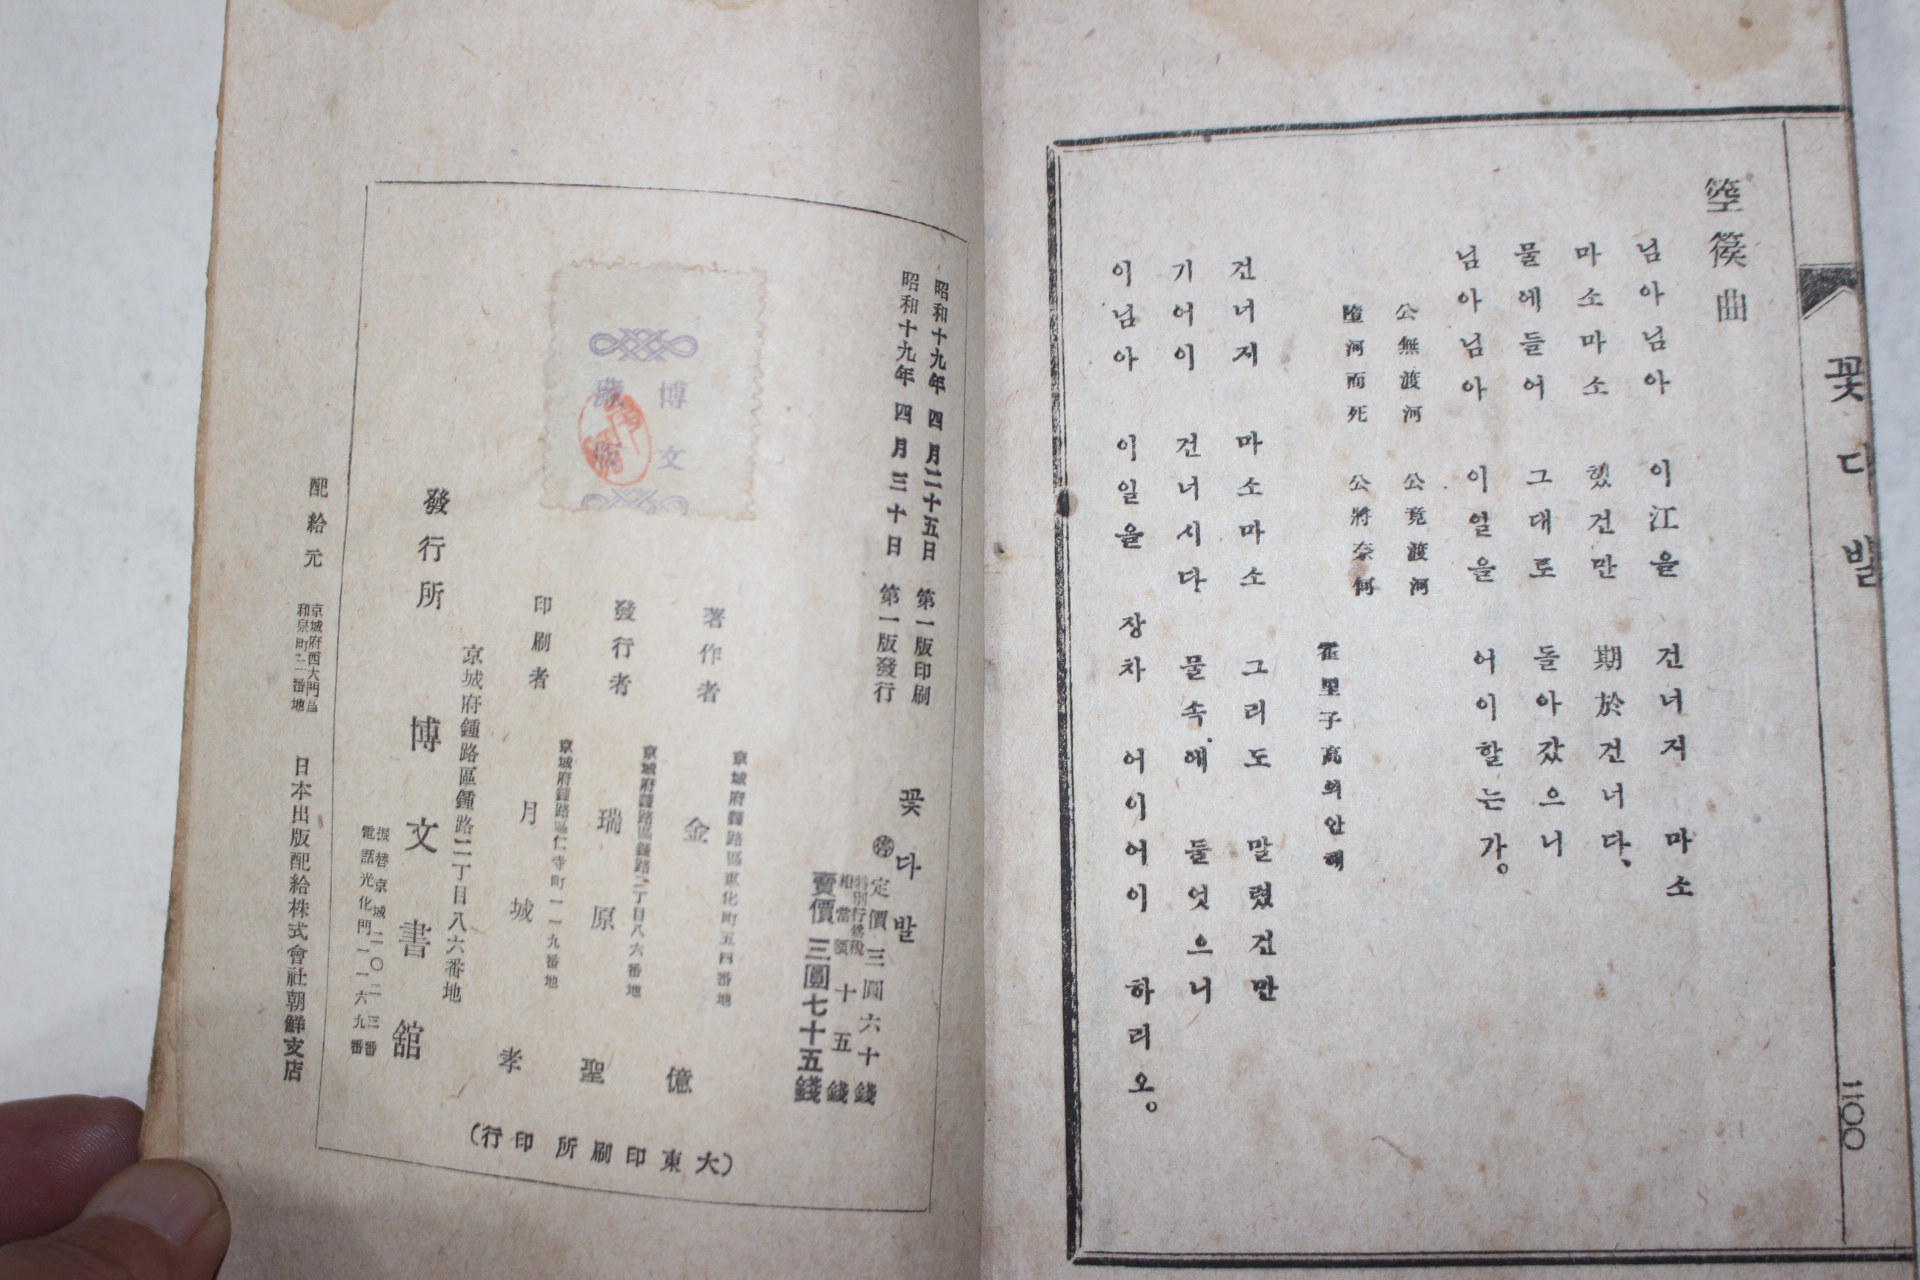 꽃다발
二〇〇
箜篌曲
님아님아 이江을 건너지 마소
마소마소 했건만 期於건너다、
물에들어 그대로 돌아갔으니
님아님아 이일을 어이할는가。
公無渡河 公竟渡河
墮河而死 公將奈何
霍里子高의안해
건너지 마소마소 그리도 말렸건만
기어이 건너시다 물속에 들엇으니
이님아 이일을 장차 어이어이 하리오。
昭和十九年 四月二十五日 第一版印刷
昭和十九年 四月三十日 第一版發行
꽃다발
定價 三圓六十錢
特別行爲稅相當額 十五錢
賣價 三圓七十五錢
博文
藏版
著作者
金億
發行者 京城府鍾路區鍾路二丁目八六番地
瑞原聖
印刷者 京城府鍾路區仁寺町一一九番地
月城孝
(大東印刷所印行)
京城府鍾路區鍾路二丁目八六番地
發行所 博文書館
振替京城二〇二三番
電話光化門一一六九番
配給元 京城府西大門區和泉町二番地 日本出版配給株式會社朝鮮支店